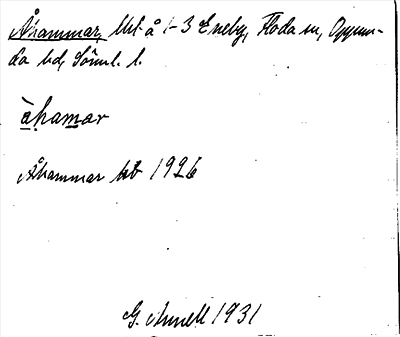 Åhammar, lht å 1-3 Eneby, Floda sn, Oppun-
da hd, Sörml. l.
àhamar
Åhammar kb 1926
G. Annell 1931